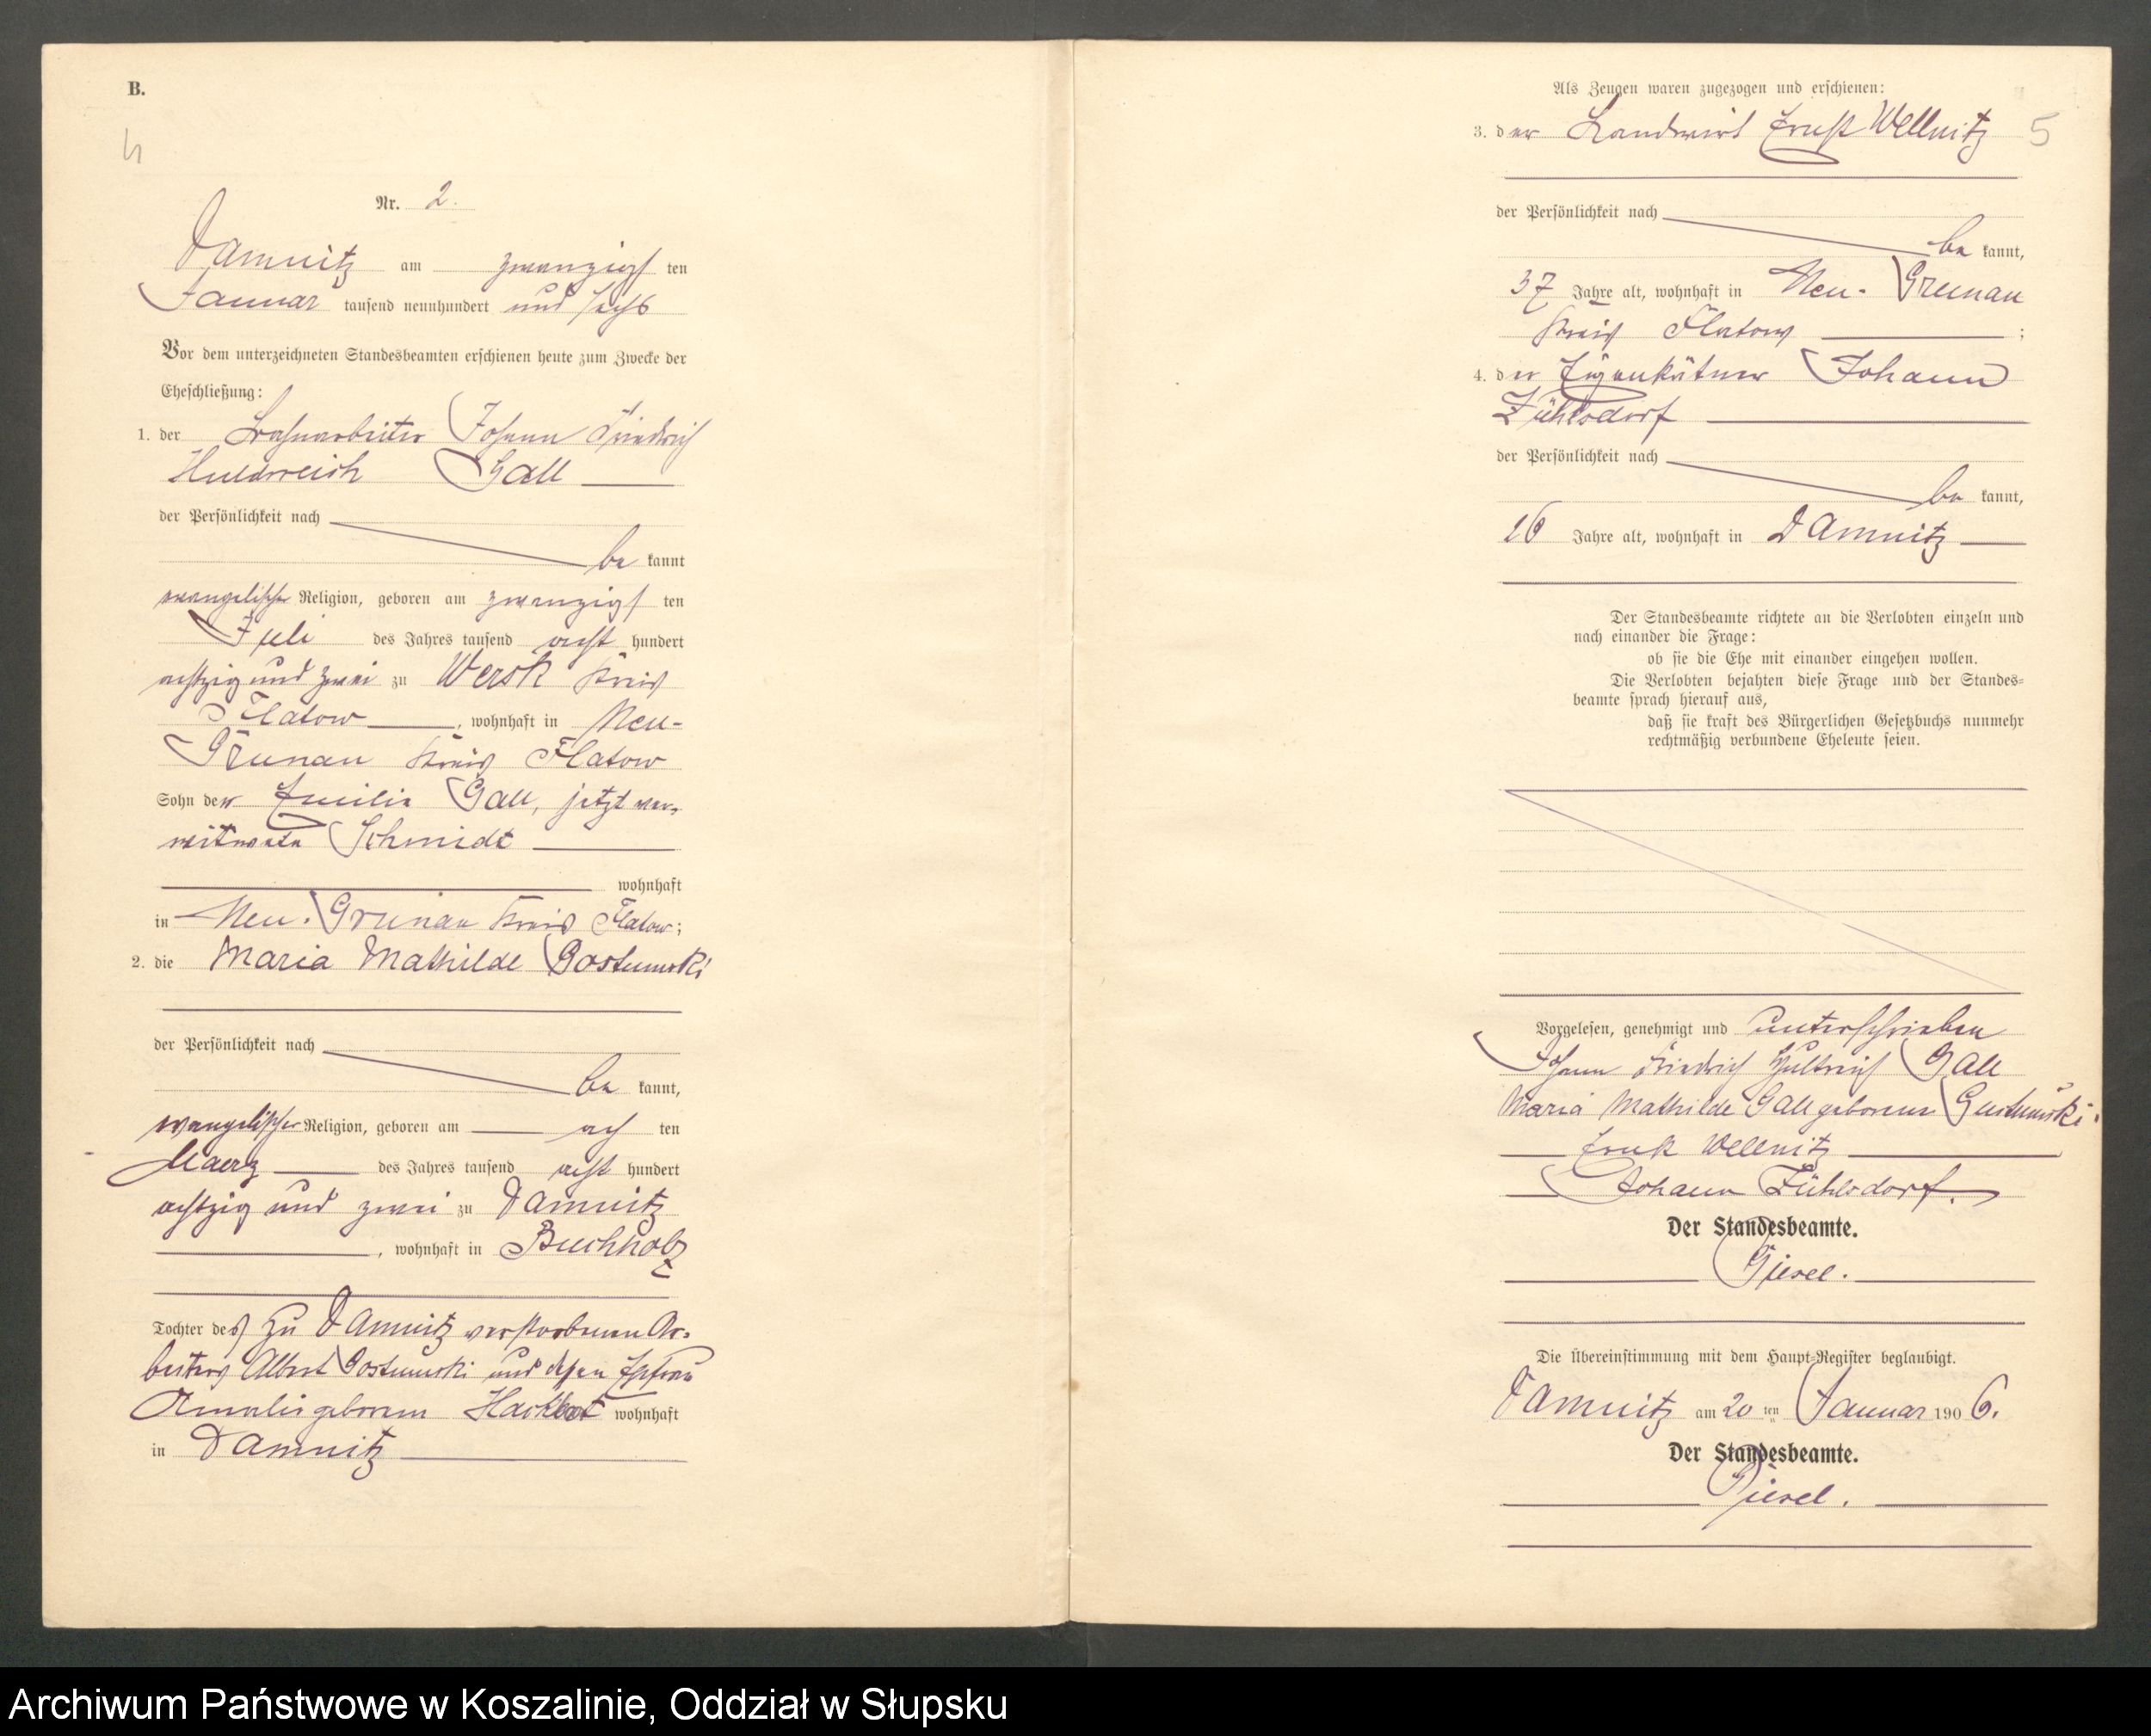 B.
4
Nr. 2.
Damnitz am zwanzigsten
Januar tausend neunhundert und sechs
Vor dem unterzeichneten Standesbeamten erschienen heute zum Zwecke der
Eheschließung:
1. der Bahnarbeiter Johann Friedrich
Huldreich Gall
der Persönlichkeit nach
be kannt
evangelischer Religion, geboren am zwanzigsten
Juli des Jahres tausend acht hundert
achtzig und zwei zu Wersk Kreis
Flatow, wohnhaft in Neu-
Grunau Kreis Flatow
Sohn der Emilie Gall, jetzt ver-
witwete Schmidt
wohnhaft
in Neu-Grunau Kreis Flatow;
2. die Maria Mathilde Gostumski
der Persönlichkeit nach
be kannt,
evangelischer Religion, geboren am achten
Maerz des Jahres tausend acht hundert
achtzig und zwei zu Damnitz
, wohnhaft in Buchholz
Tochter des zu Damnitz verstorbenen Ar-
beiters Albert Gostumski und dessen Ehefrau
Amalie geborene wohnhaft
in Damnitz
Als Zeugen waren zugezogen und erschienen:
3. der Landwirt Ernst Wellnitz 5
der Persönlichkeit nach
be kannt,
37 Jahre alt, wohnhaft in Neu-Grunau
Kreis Flatow ;
4. der Eigenkätner Johann
Zühlsdorf
der Persönlichkeit nach
be kannt,
Jahre alt, wohnhaft in Damnitz
Der Standesbeamte richtete an die Verlobten einzeln und
nach einander die Frage:
ob sie die Ehe mit einander eingehen wollen.
Die Verlobten bejahten diese Frage und der Standes-
beamte sprach hierauf aus,
daß sie kraft des Bürgerlichen Gesetzbuchs nunmehr
rechtmäßig verbundene Eheleute seien.
Vorgelesen, genehmigt und unterschrieben
Johann Friedrich Hultreich Gall
Maria Mathilde Gall geborene Gustumski.
Ernst Wellnitz
Johann Zühlsdorf.
Der Standesbeamte.
Giesel.
Die Übereinstimmung mit dem Haupt-Register beglaubigt.
Damnitz am 20ten Januar 1906.
Der Standesbeamte.
Giesel.
Archiwum Państwowe w Koszalinie, Oddział w Słupsku